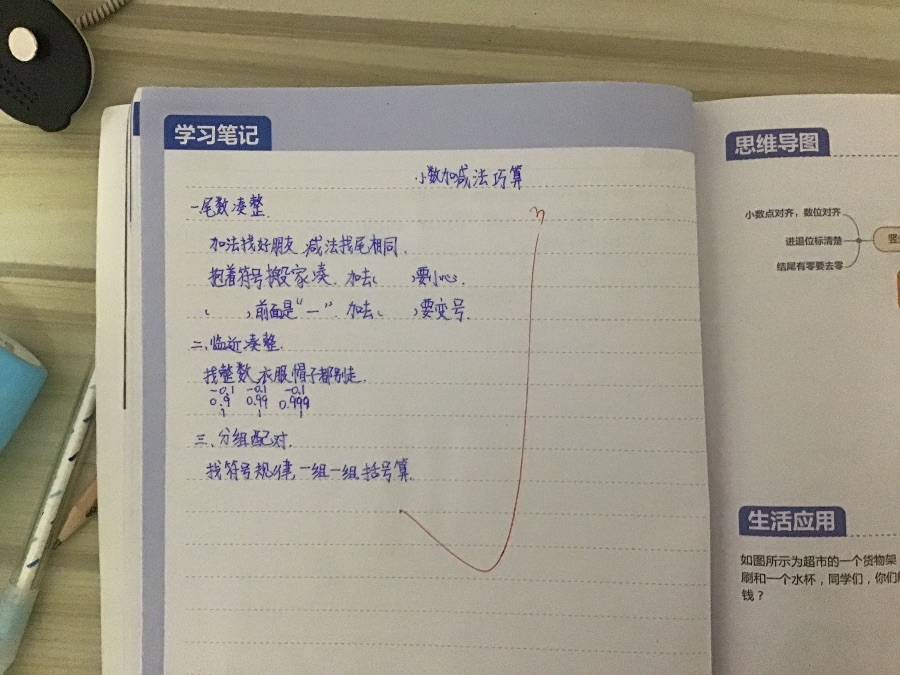 学习笔记
小数加减法巧算
一尾数凑整.
加法找好朋友 减法找尾相同.
抱着符号搬家凑. 加去( )要小心.
( )前面是“一”. 加去( )要变号.
二、临近凑整.
找整数,衣服帽子都别走.
-0.1 -0.1 -0.1
0.9 0.99 0.999
1 1 1
三、分组配对.
找符号规律,一组一组括号算.
思维导图
小数点对齐，数位对齐
进退位标清楚
结尾有零要去零
竖
生活应用
如图所示为超市的一个货物架
刷和一个水杯，同学们，你们
钱？